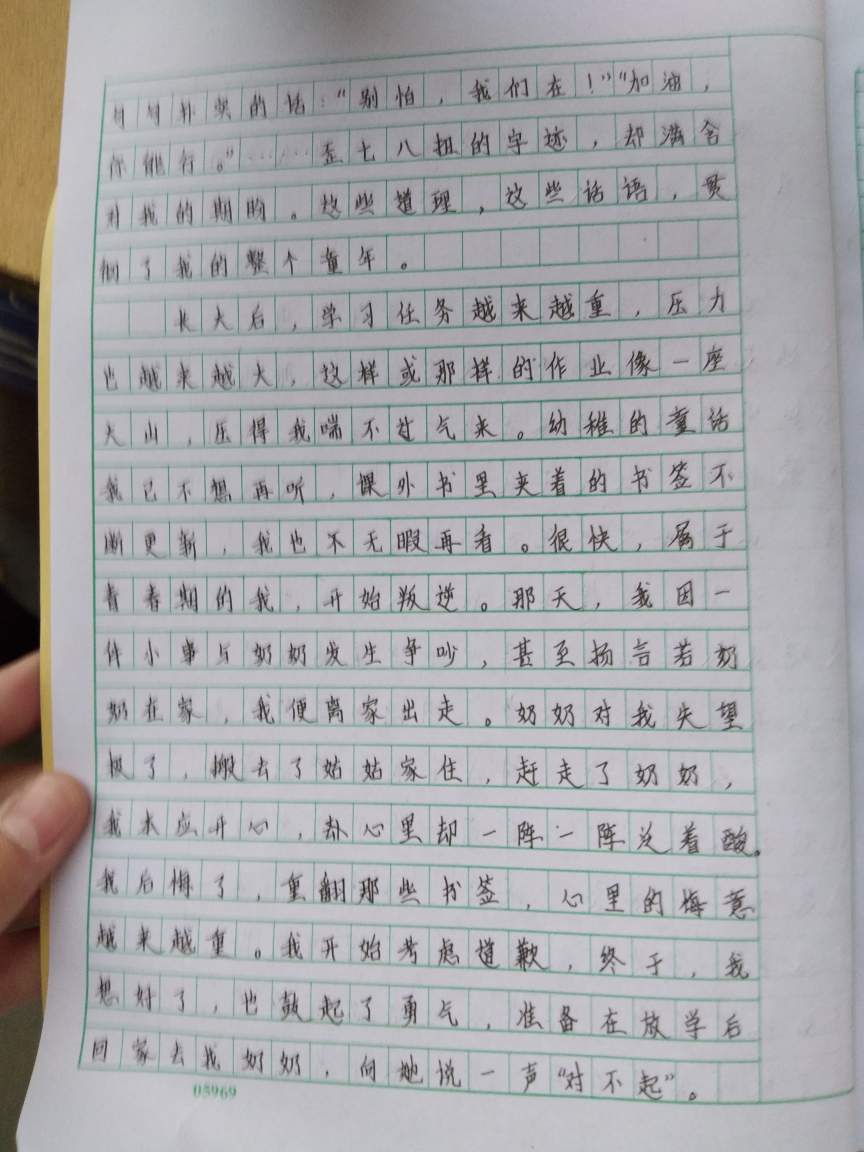 句句朴实的话：“别怕，我们在！”“加油，
你能行。”……歪七八扭的字迹，却满含
对我的期盼。这些道理，这些话语，贯
彻了我的整个童年。
长大后，学习任务越来越重，压力
也越来越大，这样或那样的作业像一座
大山，压得我喘不过气来。幼稚的童话
我已不想再听，课外书里夹着的书签不
断更新，我也不无暇再看。很快，属于
青春期的我，开始叛逆。那天，我因一
件小事与奶奶发生争吵，甚至扬言若奶
奶在家，我便离家出走。奶奶对我失望
极了，搬去了姑姑家住，赶走了奶奶，
我本应开心，却心里却一阵一阵泛着酸。
我后悔了，重翻那些书签，心里的悔意
越来越重。我开始考虑道歉，终于，我
想好了，也鼓起了勇气，准备在放学后
回家去找奶奶，向她说一声“对不起”。
05969